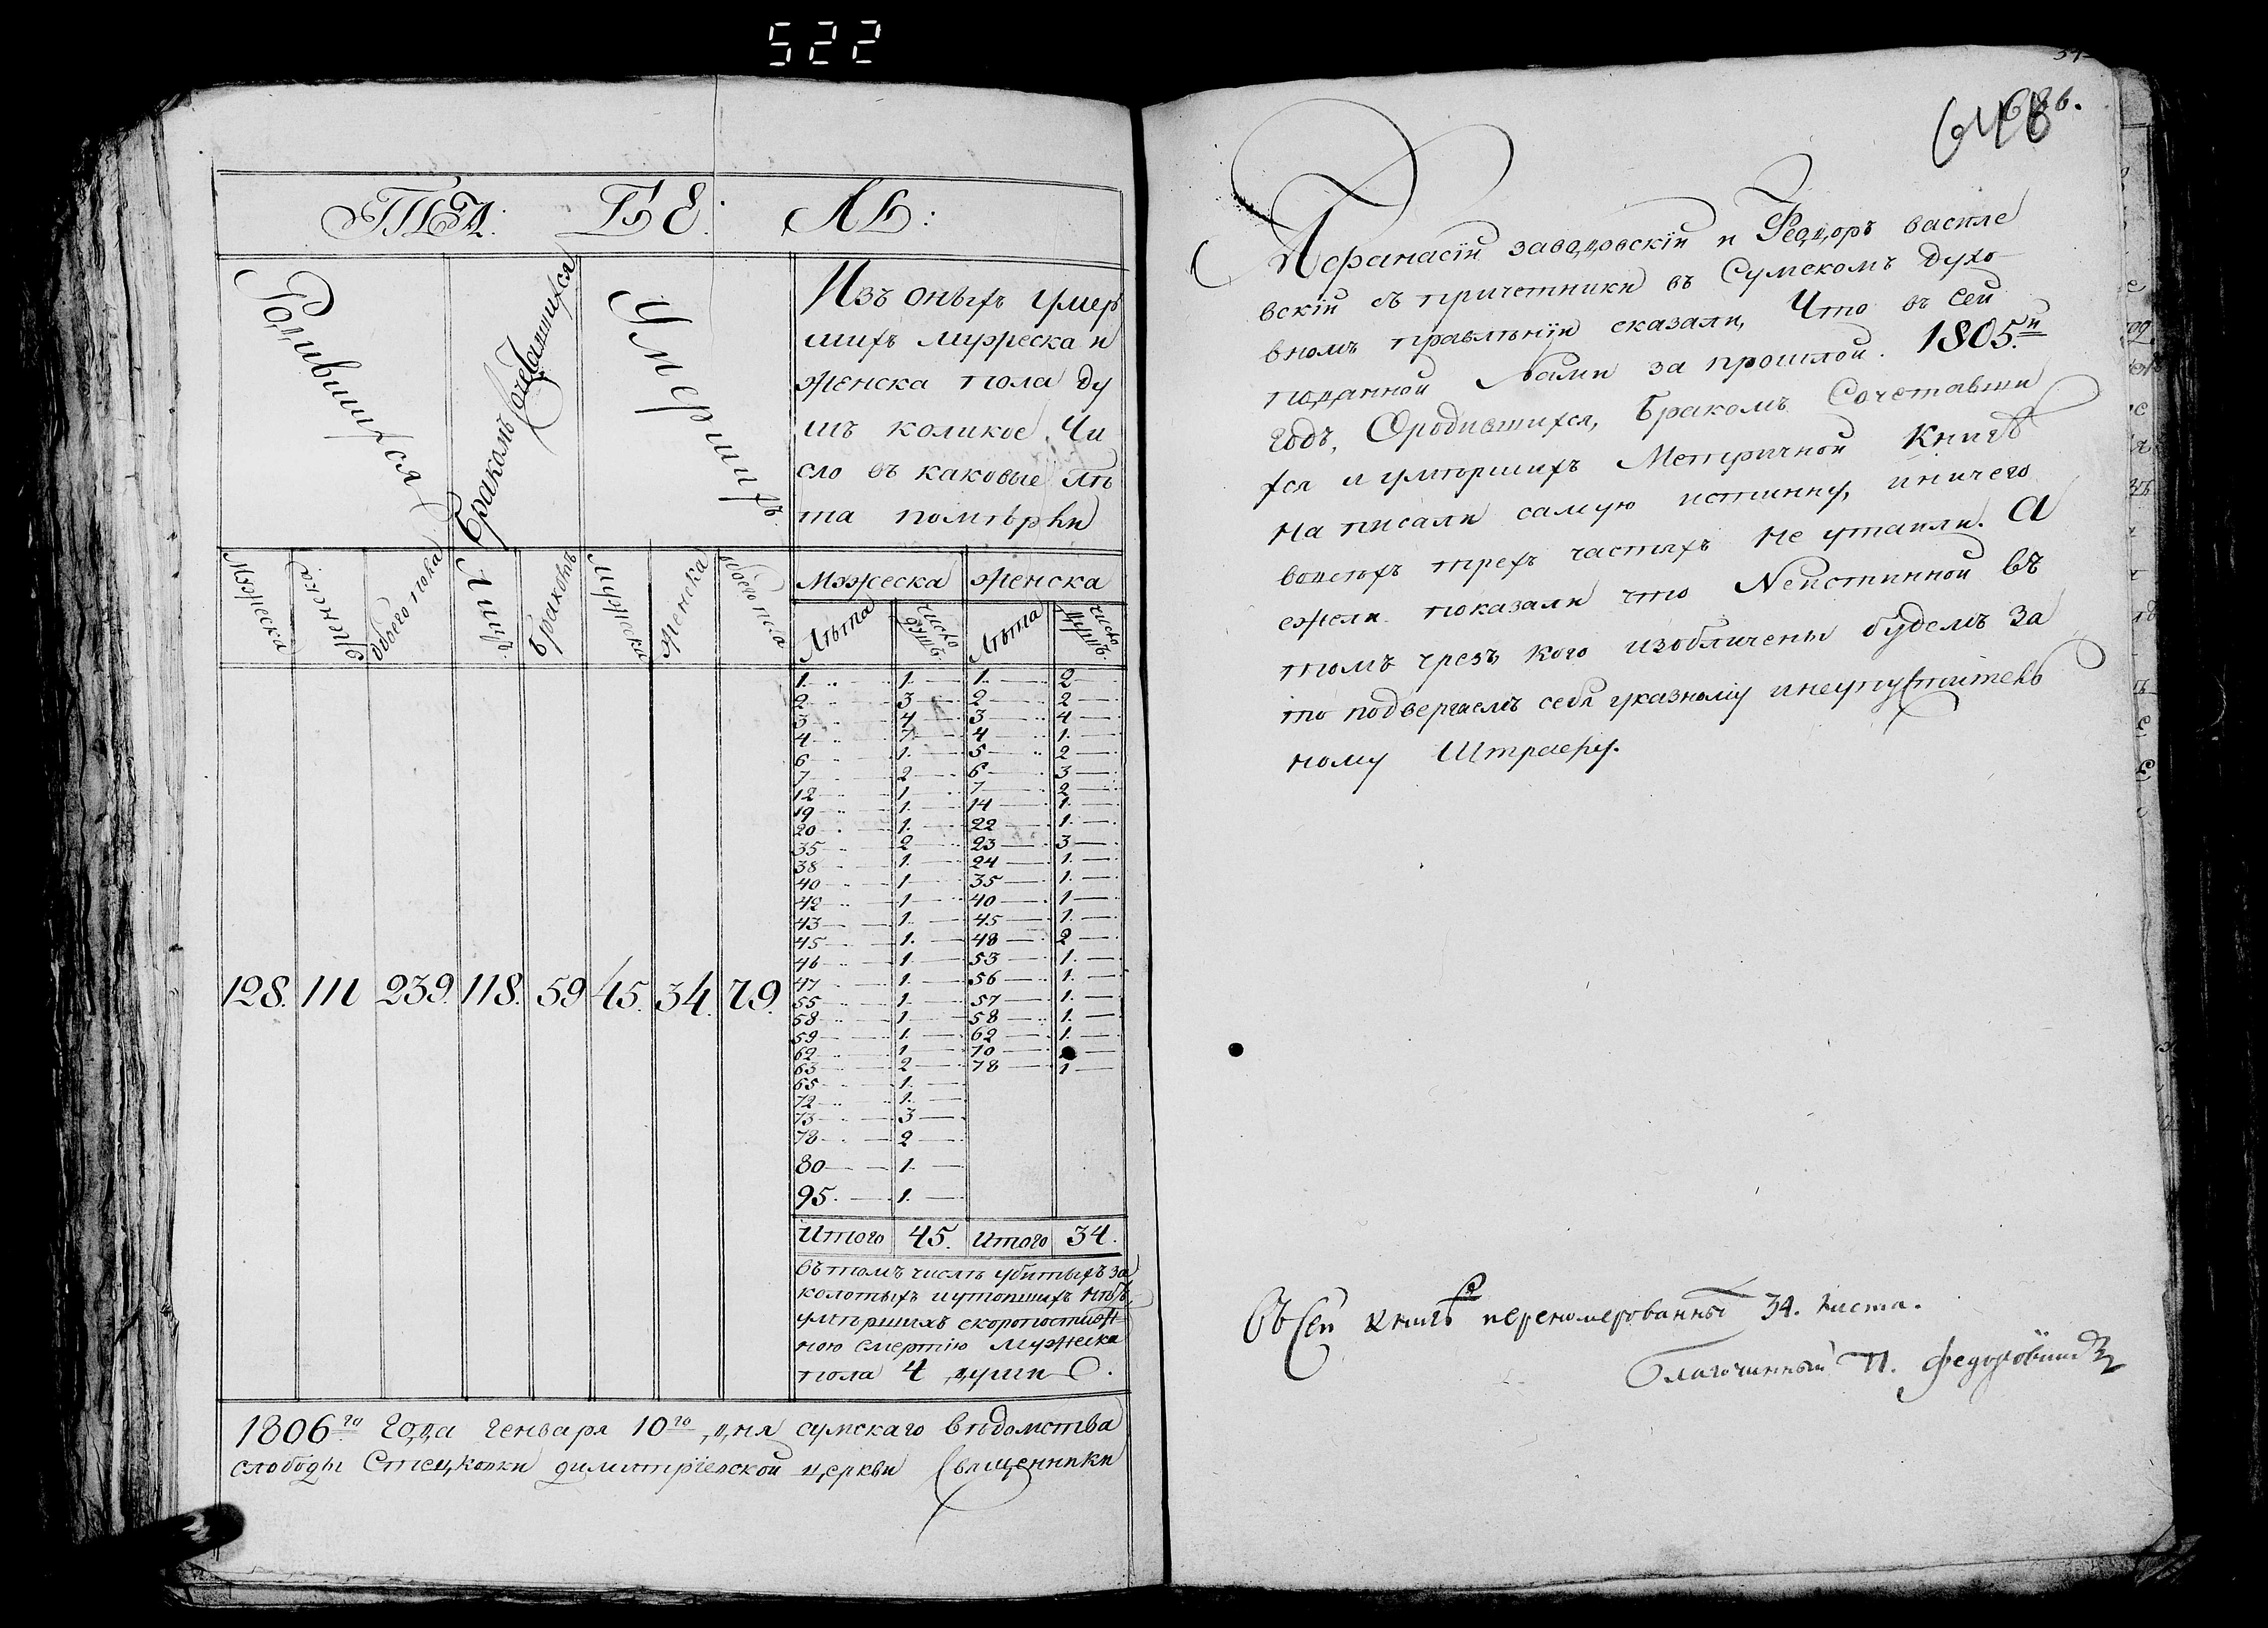 522
ТА: БЕ: ЛЬ:
Родившихся
Бракомъ Сочетавшихся
Умершихъ
Изъ оныхъ умер
шихъ мужеска и
женска пола ду
шъ коликое Чи
сло въ каковые лѣ
та помѣрли
Мужеска Женска обоего пола Лицъ. браковъ Мужеска Женска обоего пола
Мужеска Женска
Лѣта число душъ. Лѣта число душъ.
1. 1. 1. 2
2 3 2 2
3 4 3 4
4 7 4 1.
6 1. 5 2
7 2 6 3
12 1. 7 2
19 1. 14 1.
20 1. 22 1.
35 2 23 3
38 1. 24 1.
40 1 35 1.
42 1 40 1
43 1. 45 1.
45 1. 48 2
46 1. 53 1.
47 1. 56 1.
55 1. 57 1.
58 1 58 1.
59 1. 62 1.
62 1 70
63 2 78 1
65 1.
72 1.
73 3
78 2
80 1.
95. 1.
128. 111 239. 118. 59 45. 34. 79.
Итого 45. Итого 34.
Въ томъ числѣ убитыхъ за
колотыхъ и утопшихъ нѣтъ,
умѣршихъ скоропостиж
ною смертію Мужеска
пола 4 души.
1806го года генваря 10го дня сумскаго вѣдомства
слободы Стецковки димитріевской церкви Священники
34
648
686.
Афанасій заводовскій и Федоръ василе
вскій съ причетники въ Сумскомъ Духо
вномъ правленіи сказали, Что въ сей
поданной Нами за прошлой 1805й
годъ, Ородившихся, Бракомъ Сочетавши
хся и умѣршихъ Метричной Книгѣ
написали самую истинну, иничего
вовсехъ трехъ частяхъ не утаили. А
ежели показали что Неистинной въ
томъ чрезъ кого изобличены будемъ За
то подвергаемъ себя указному инеупустителъ
ному Штрафу.
Въ Сей книгѣ переномерованны 34. листа.
Благочинный П.